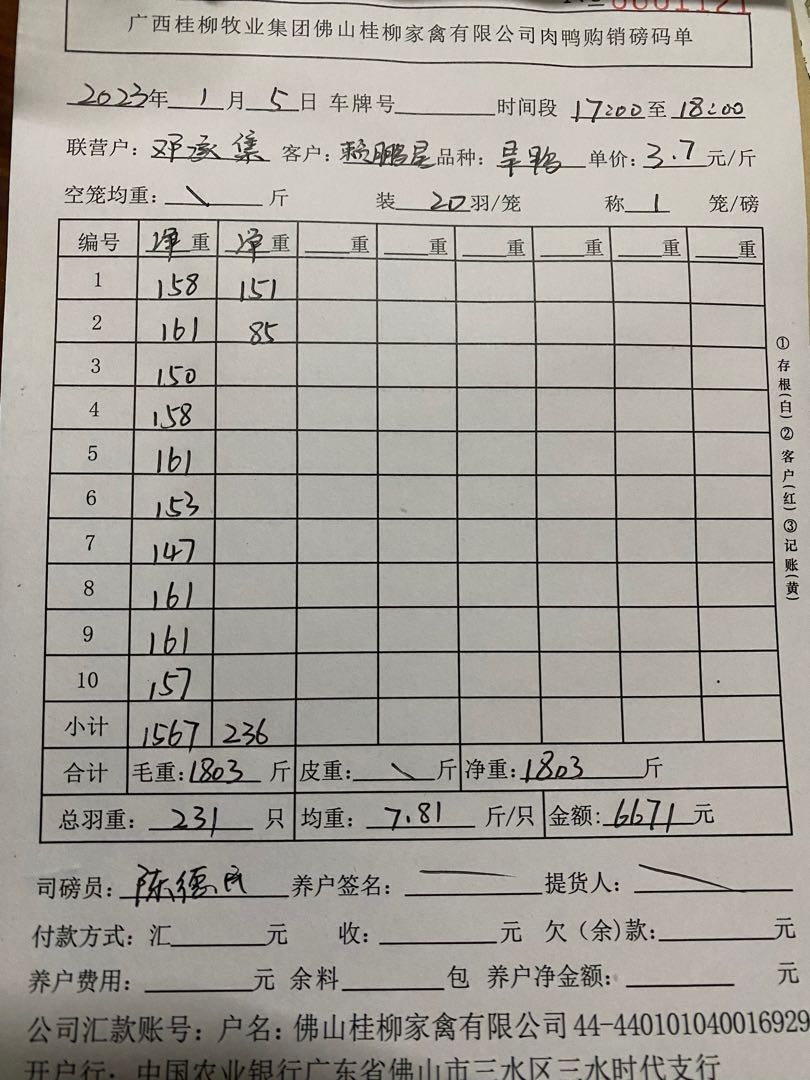 0001121
广西桂柳牧业集团佛山桂柳家禽有限公司肉鸭购销磅码单
2023年 1 月 5 日 车牌号 时间段 17:00 至 18:00
联营户: 邓承集 客户: 赖鹏星 品种: 旱鸭 单价: 3.7 元/斤
空笼均重: \ 斤 装 20 羽/笼 称 1 笼/磅
编号 净重 净重 重 重 重 重 重 重
1 158 151
2 161 85
3 150
4 158
5 161
6 153
7 147
8 161
9 161
10 157
小计 1567 236
合计 毛重: 1803 斤 皮重: \ 斤 净重: 1803 斤
总羽重: 231 只 均重: 7.81 斤/只 金额: 6671 元
司磅员: 陈德民 养户签名: 提货人:
付款方式: 汇 元 收: 元 欠（余）款: 元
养户费用: 元 余料 包 养户净金额: 元
公司汇款账号: 户名: 佛山桂柳家禽有限公司 44-440101040016929
开户行: 中国农业银行广东省佛山市三水区三水时代支行
①存根(白)②客户(红)③记账(黄)